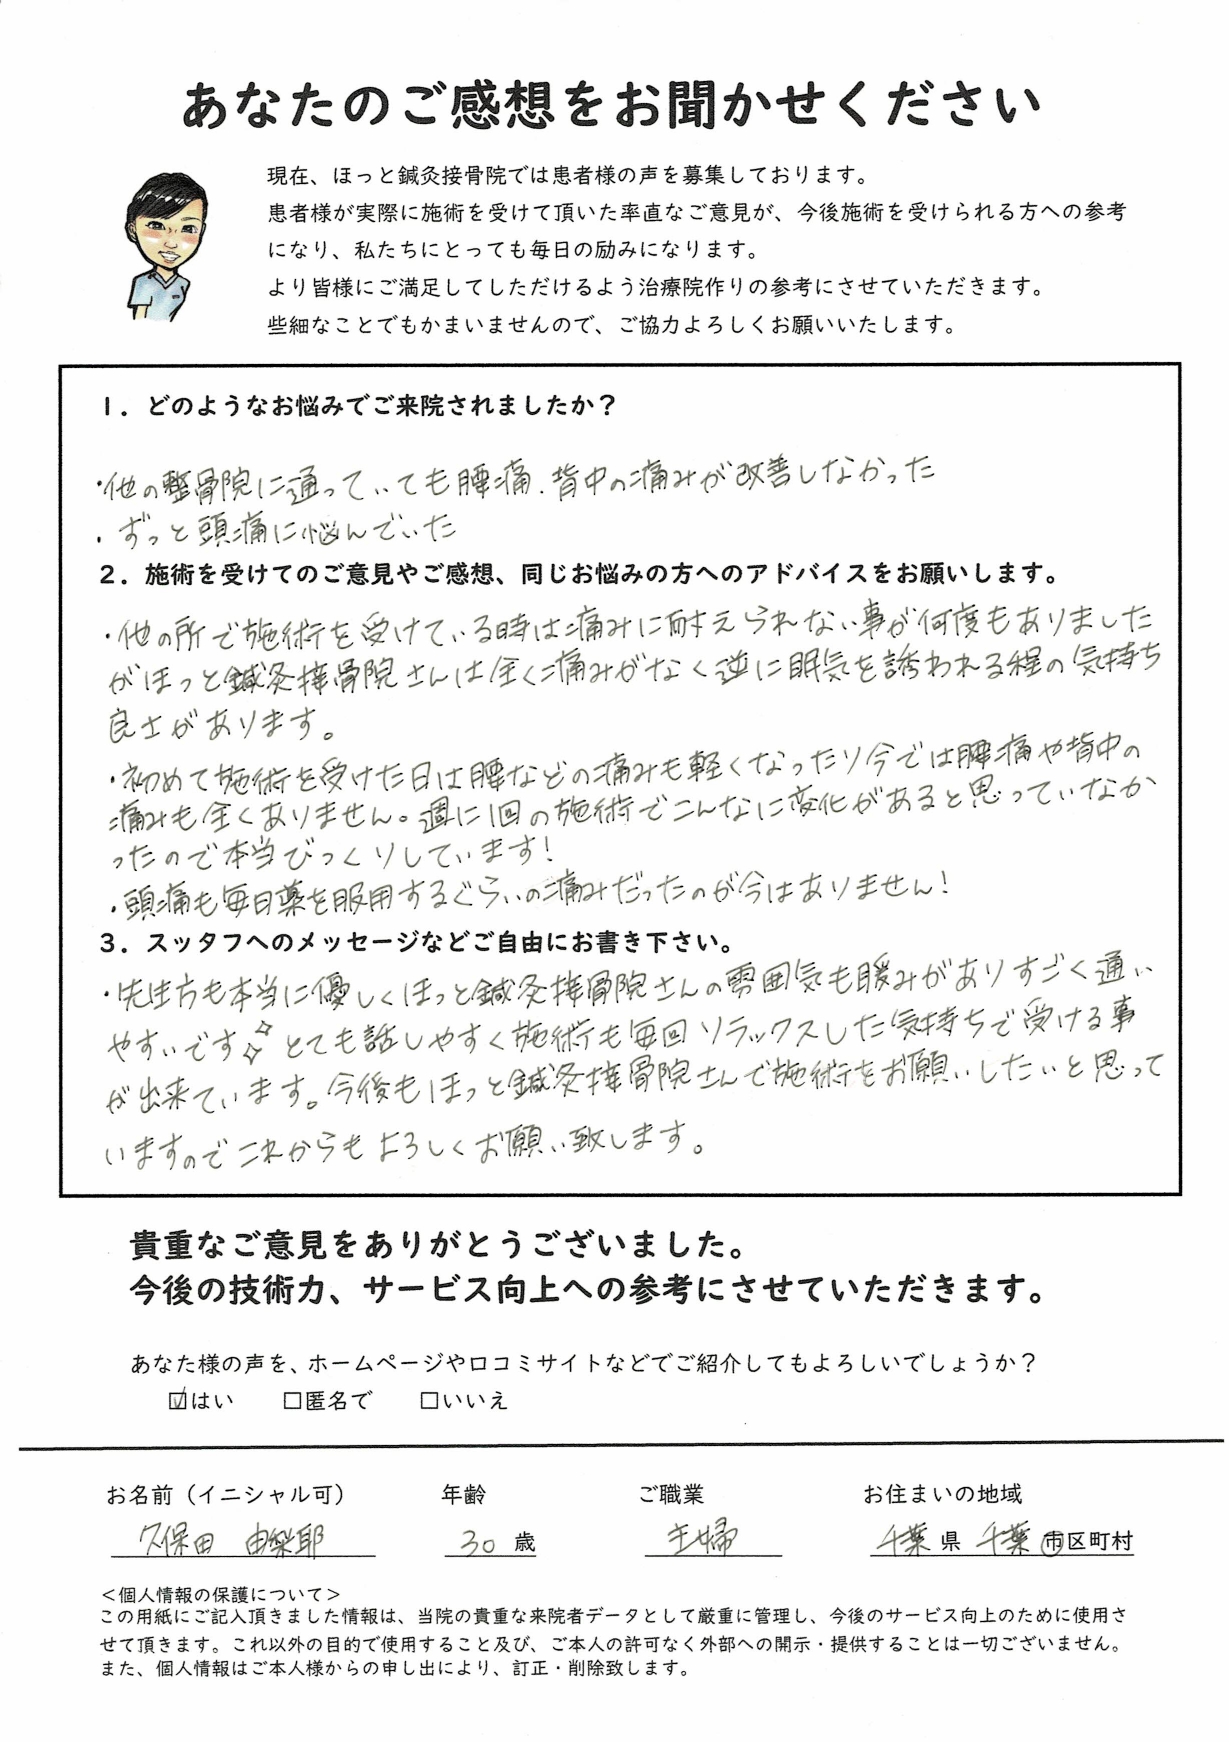 あなたのご感想をお聞かせください
現在、ほっと鍼灸接骨院では患者様の声を募集しております。
患者様が実際に施術を受けて頂いた率直なご意見が、今後施術を受けられる方への参考
になり、私たちにとっても毎日の励みになります。
より皆様にご満足してしただけるよう治療院作りの参考にさせていただきます。
些細なことでもかまいませんので、ご協力よろしくお願いいたします。
1．どのようなお悩みでご来院されましたか？
・他の整骨院に通っていても腰痛、背中の痛みが改善しなかった
・ずっと頭痛に悩んでいた
2．施術を受けてのご意見やご感想、同じお悩みの方へのアドバイスをお願いします。
・他の所で施術を受けている時は痛みに耐えられない事が何度もありました
がほっと鍼灸接骨院さんは全く痛みがなく逆に眠気を誘われる程の気持ち
良さがあります。
・初めて施術を受けた日は腰などの痛みも軽くなったり今では腰痛や背中の
痛みも全くありません。週に1回の施術でこんなに変化があると思っていなか
ったので本当びっくりしています！
・頭痛も毎日薬を服用するぐらいの痛みだったのが今はありません！
3．スッタフへのメッセージなどご自由にお書き下さい。
・先生方も本当に優しくほっと鍼灸接骨院さんの雰囲気も暖みがありすごく通い
やすいです✨とても話しやすく施術も毎回リラックスした気持ちで受ける事
が出来ています。今後もほっと鍼灸接骨院さんで施術をお願いしたいと思って
いますのでこれからもよろしくお願い致します。
貴重なご意見をありがとうございました。
今後の技術力、サービス向上への参考にさせていただきます。
あなた様の声を、ホームページや口コミサイトなどでご紹介してもよろしいでしょうか？
☑はい　□匿名で　□いいえ
お名前（イニシャル可）　年齢　ご職業　お住まいの地域
久保田 由梨耶　30歳　主婦　千葉県 千葉市区町村
＜個人情報の保護について＞
この用紙にご記入頂きました情報は、当院の貴重な来院者データとして厳重に管理し、今後のサービス向上のために使用さ
せて頂きます。これ以外の目的で使用すること及び、ご本人の許可なく外部への開示・提供することは一切ございません。
また、個人情報はご本人様からの申し出により、訂正・削除致します。